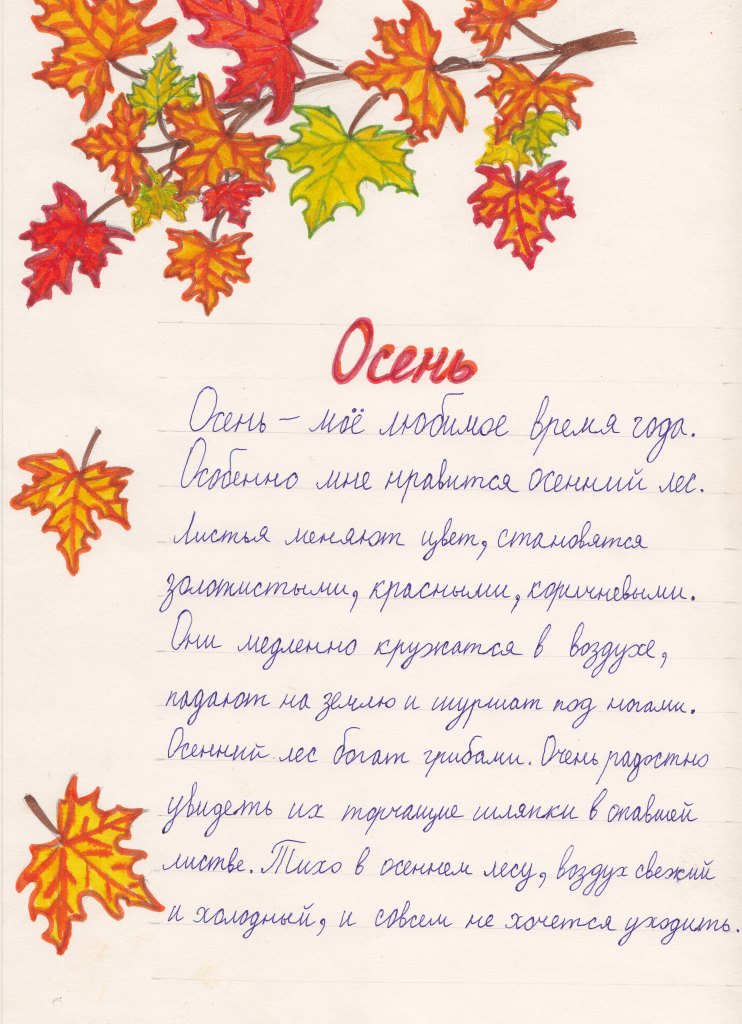 Осень
Осень – моё любимое время года.
Особенно мне нравится осенний лес.
Листья меняют цвет, становятся
золотистыми, красными, коричневыми.
Они медленно кружатся в воздухе,
падают на землю и шуршат под ногами.
Осенний лес богат грибами. Очень радостно
увидеть их торчащие шляпки в опавшей
листве. Тихо в осеннем лесу, воздух свежий
и холодный, и совсем не хочется уходить.